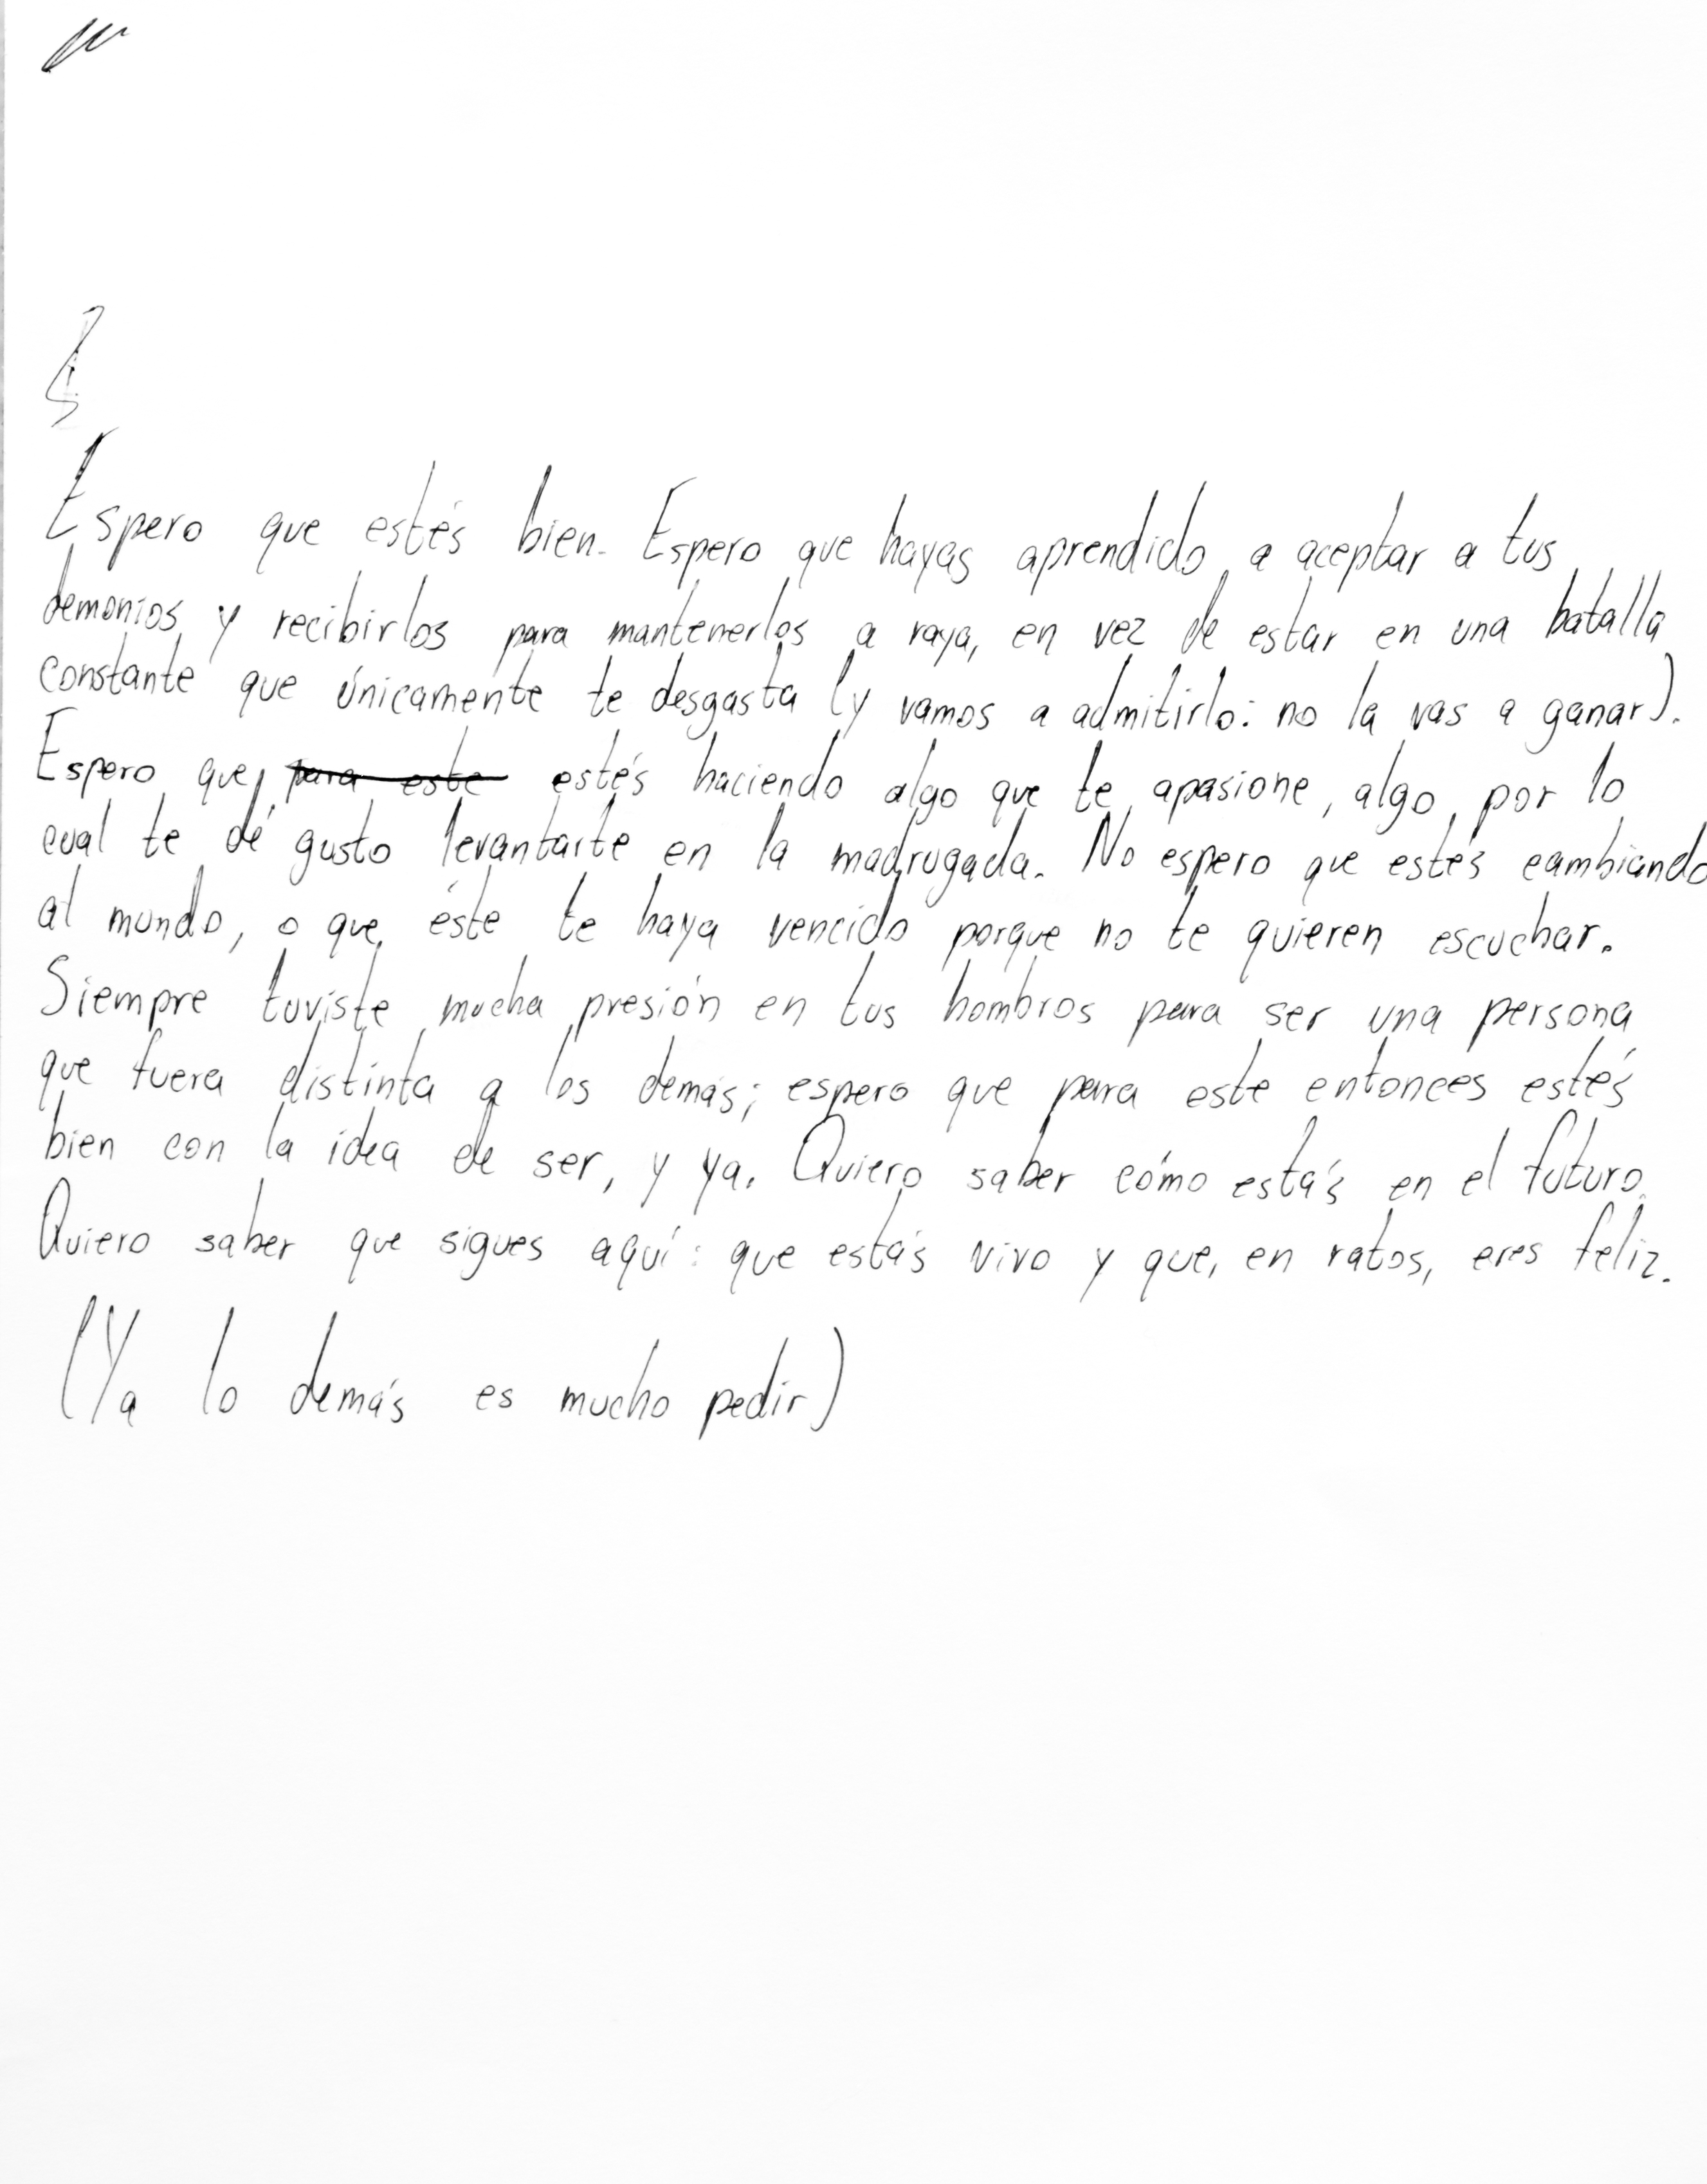 Espero que estés bien. Espero que hayas aprendido a aceptar a tus
demonios y recibirlos para mantenerlos a raya, en vez de estar en una batalla
constante que únicamente te desgasta (y vamos a admitirlo: no la vas a ganar).
Espero que, para este estés haciendo algo que te apasione, algo por lo
cual te dé gusto levantarte en la madrugada. No espero que estés cambiando
al mundo, o que éste te haya vencido porque no te quieren escuchar.
Siempre tuviste mucha presión en tus hombros para ser una persona
que fuera distinta a los demás; espero que para este entonces estés
bien con la idea de ser, y ya. Quiero saber cómo estás en el futuro.
Quiero saber que sigues aquí: que estás vivo y que, en ratos, eres feliz.
(Ya lo demás es mucho pedir)